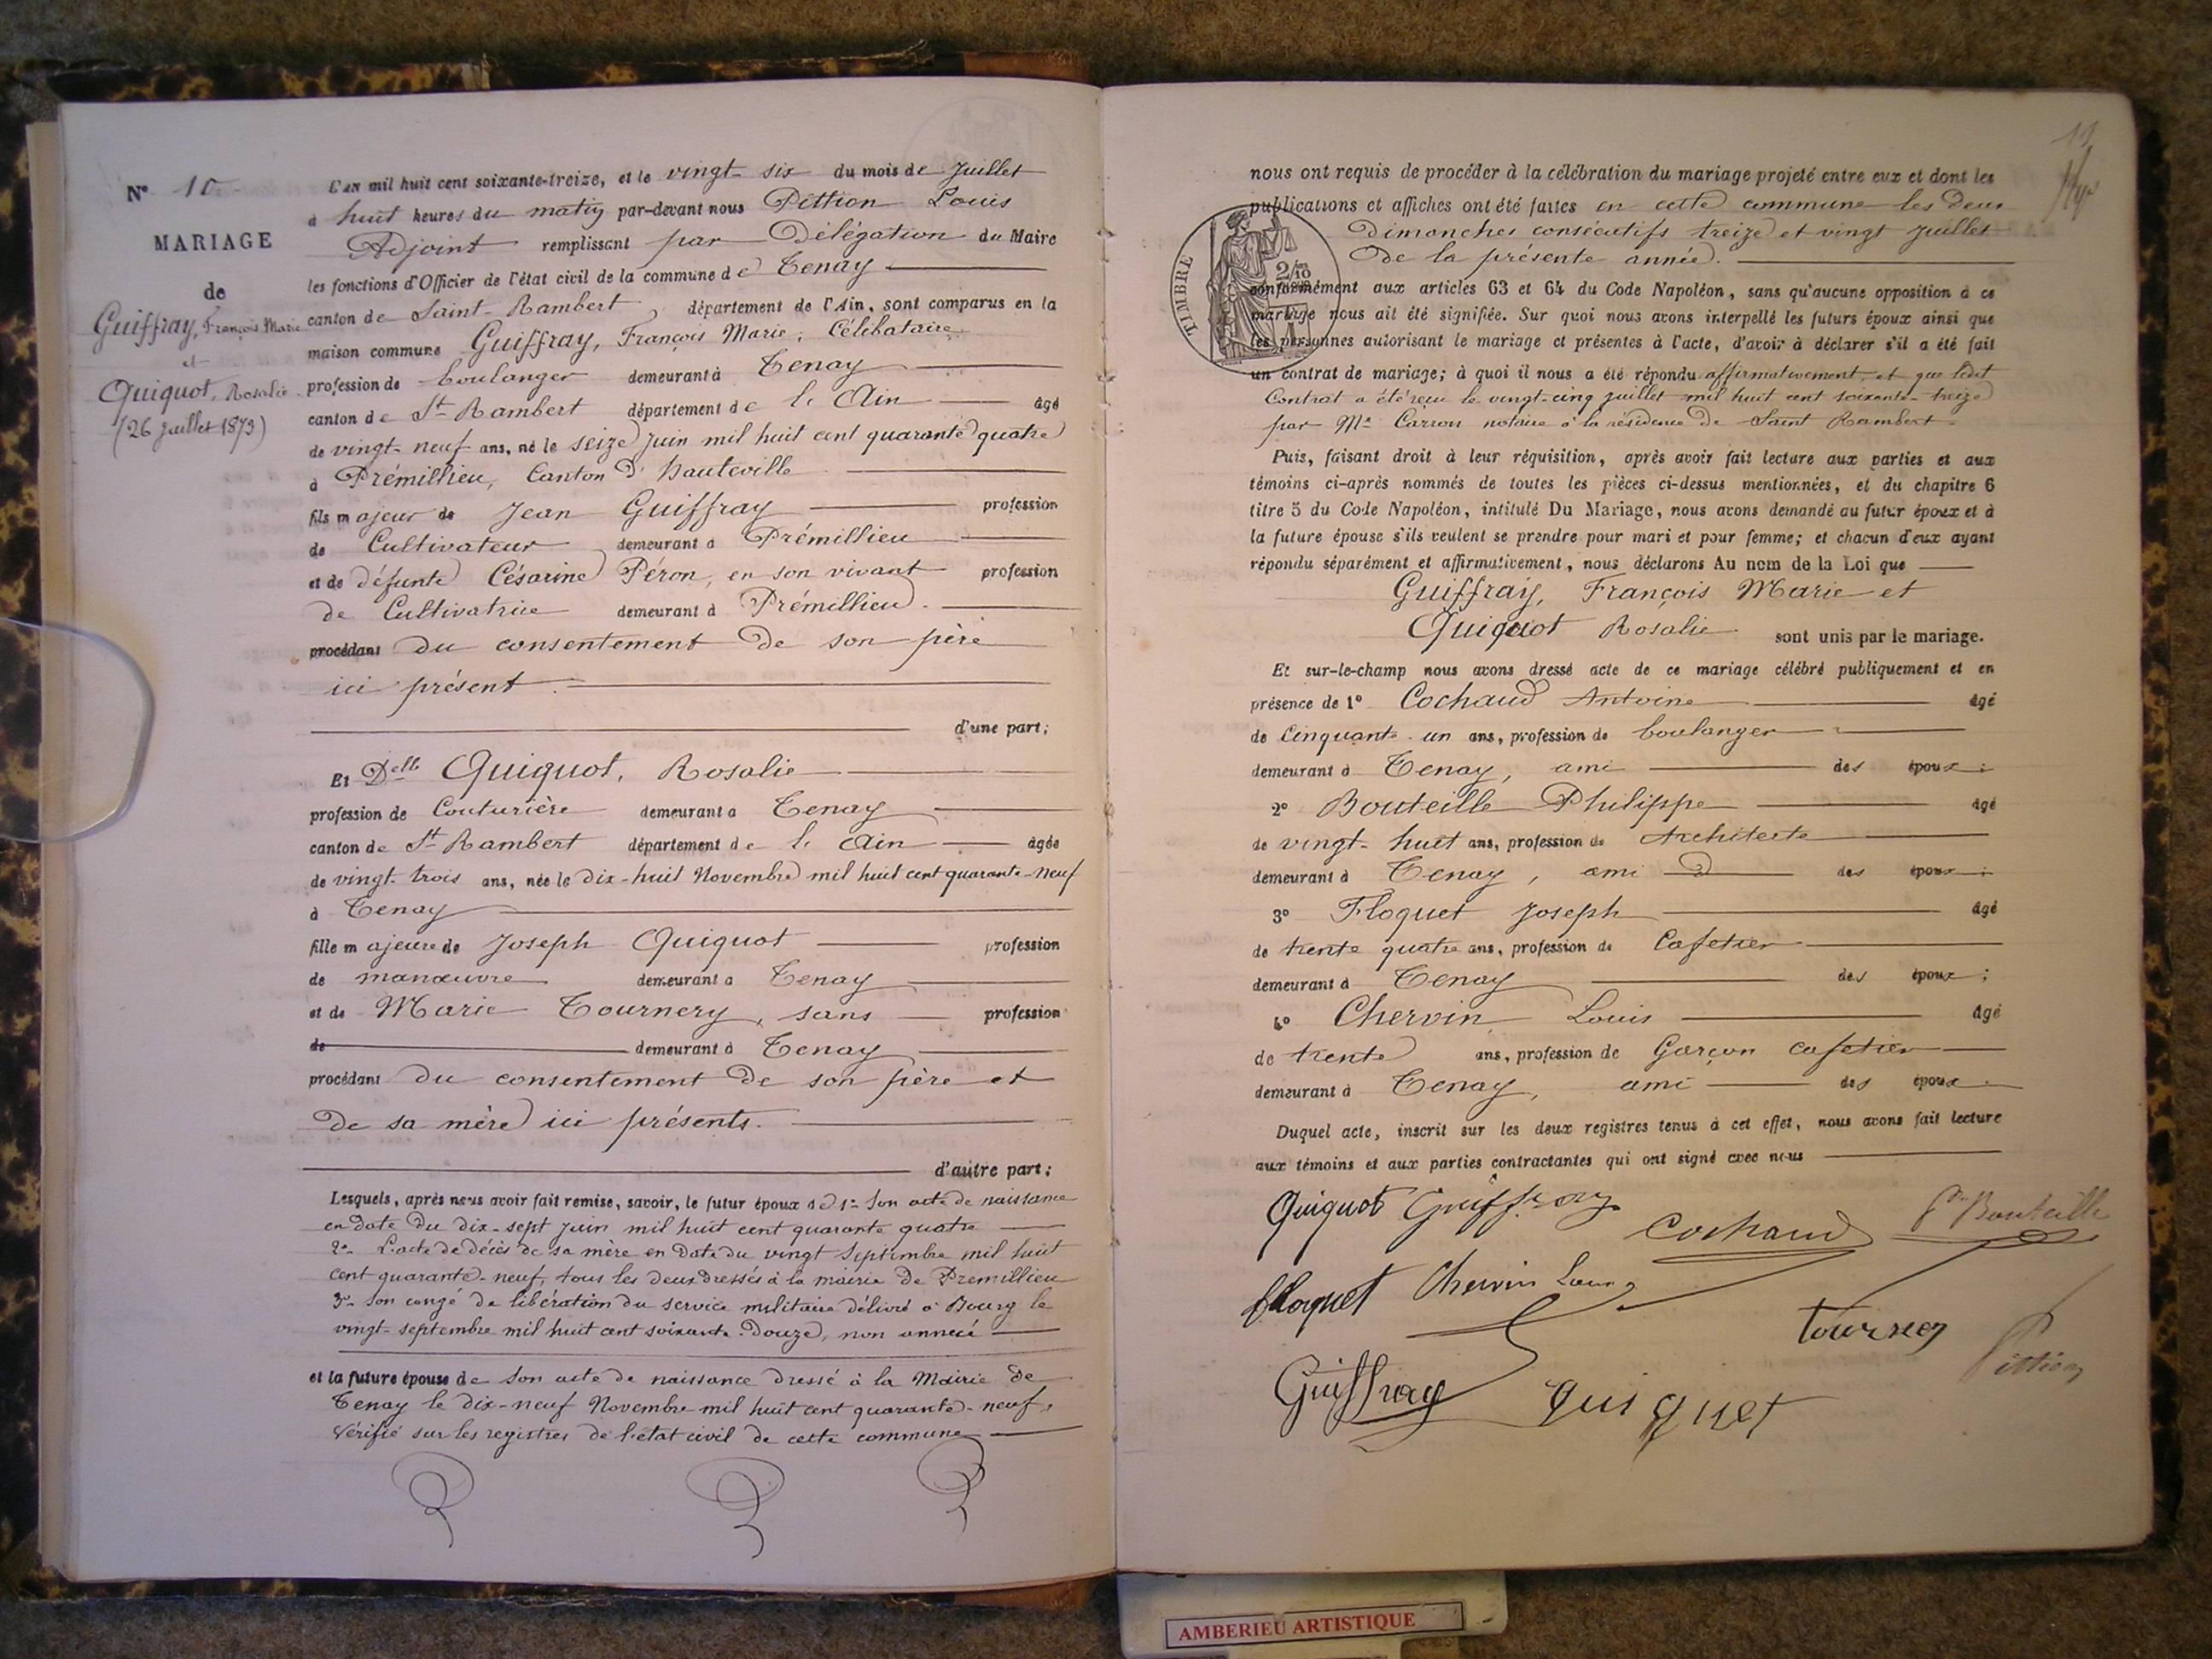 N° 10
MARIAGE
de
Guiffray, François Marie
et
Quiquot, Rosalie
(26 Juillet 1873)
L'an mil huit cent soixante-treize, et le vingt-six du mois de Juillet
à huit heures du matin par-devant nous Pittion Louis
Adjoint remplissant par Délégation du Maire
les fonctions d'Officier de l'état civil de la commune de Tenay
canton de Saint-Rambert, département de l'Ain, sont comparus en la
maison commune Guiffray, François Marie, Célibataire
profession de boulanger demeurant à Tenay
canton de St Rambert département de l'Ain âgé
de vingt-neuf ans, né le seize Juin mil huit cent quarante quatre
à Prémillieu, Canton d'hauteville
fils majeur de Jean Guiffray profession
de Cultivateur demeurant à Prémillieu
et de défunte Césarine Péron, en son vivant profession
de Cultivatrice demeurant à Prémillieu.
procédant du consentement de son père
ici présent.
d'une part;
Et Delle Quiquot, Rosalie
profession de Couturière demeurant à Tenay
canton de St Rambert département de l'Ain âgée
de vingt-trois ans, née le dix-huit Novembre mil huit cent quarante-neuf
à Tenay
fille majeure de Joseph Quiquot profession
de manœuvre demeurant à Tenay
et de Marie Tournery, sans profession
de demeurant à Tenay
procédant du consentement de son père et
de sa mère ici présents.
d'autre part;
Lesquels, après nous avoir fait remise, savoir, le futur époux de 1° Son acte de naissance
en date du dix-sept juin mil huit cent quarante quatre
2° L'acte de décès de sa mère en date du vingt Septembre mil huit
cent quarante-neuf, tous les deux dressés à la mairie de Premillieu
3° Son congé de libération du service militaire délivré à Bourg le
vingt-septembre mil huit cent soixante-douze, non annexé
et la future épouse de Son acte de naissance dressé à la Mairie de
Tenay le dix-neuf Novembre mil huit cent quarante-neuf,
vérifié sur les registres de l'état civil de cette commune
11
nous ont requis de procéder à la célébration du mariage projeté entre eux et dont les
publications et affiches ont été faites en cette commune les deux
Dimanches consécutifs treize et vingt Juillet
de la présente année.
TIMBRE
2/10
conformément aux articles 63 et 64 du Code Napoléon, sans qu'aucune opposition à ce
mariage nous ait été signifiée. Sur quoi nous avons interpellé les futurs époux ainsi que
les personnes autorisant le mariage et présentes à l'acte, d'avoir à déclarer s'il a été fait
un contrat de mariage; à quoi il nous a été répondu affirmativement, et que ledit
Contrat a été reçu le vingt-cinq juillet mil huit cent soixante-treize
par Me Carron notaire à la résidence de Saint Rambert.
Puis, faisant droit à leur réquisition, après avoir fait lecture aux parties et aux
témoins ci-après nommés de toutes les pièces ci-dessus mentionnées, et du chapitre 6
titre 5 du Code Napoléon, intitulé Du Mariage, nous avons demandé au futur époux et à
la future épouse s'ils veulent se prendre pour mari et pour femme; et chacun d'eux ayant
répondu séparément et affirmativement, nous déclarons Au nom de la Loi que
Guiffray, François Marie et
Quiquot Rosalie sont unis par le mariage.
Et sur-le-champ nous avons dressé acte de ce mariage célébré publiquement et en
présence de 1° Cochaud Antoine âgé
de Cinquante-un ans, profession de boulanger
demeurant à Tenay, ami des époux;
2° Bouteille Philippe âgé
de vingt-huit ans, profession de Architecte
demeurant à Tenay, ami des époux;
3° Floquet Joseph âgé
de trente quatre ans, profession de Cafetier
demeurant à Tenay des époux;
4° Chervin Louis âgé
de trente ans, profession de Garçon Cafetier
demeurant à Tenay, ami des époux.
Duquel acte, inscrit sur les deux registres tenus à cet effet, nous avons fait lecture
aux témoins et aux parties contractantes qui ont signé avec nous
Quiquot Guiffray Cochaud Bouteille
floquet Chervin Louis
Tournery Pittion
Guiffray quiquet
AMBERIEU ARTISTIQUE